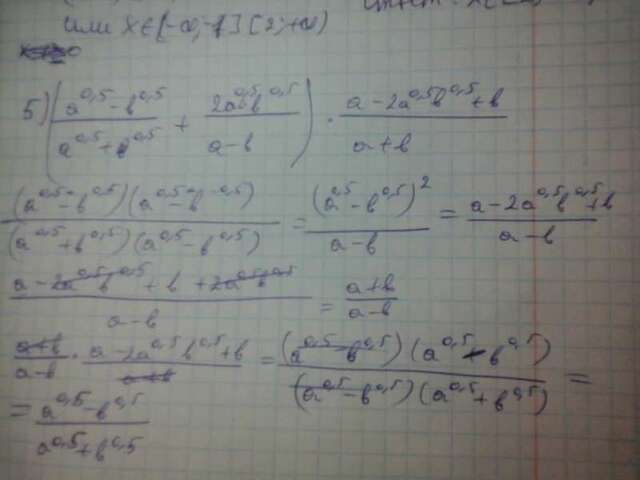 или x∈(-∞;-1] [2;+∞)
5) ((a^0,5 - b^0,5)/(a^0,5 + b^0,5) + (2a^0,5 b^0,5)/(a-b)) · (a - 2a^0,5 b^0,5 + b)/(a+b)
((a^0,5 - b^0,5)(a^0,5 - b^0,5))/((a^0,5 + b^0,5)(a^0,5 - b^0,5)) = (a^0,5 - b^0,5)^2/(a-b) = (a - 2a^0,5 b^0,5 + b)/(a-b)
(a - 2a^0,5 b^0,5 + b + 2a^0,5 b^0,5)/(a-b) = (a+b)/(a-b)
(a+b)/(a-b) · (a - 2a^0,5 b^0,5 + b)/(a+b) = ((a^0,5 - b^0,5)(a^0,5 - b^0,5))/((a^0,5 - b^0,5)(a^0,5 + b^0,5)) =
= (a^0,5 - b^0,5)/(a^0,5 + b^0,5)